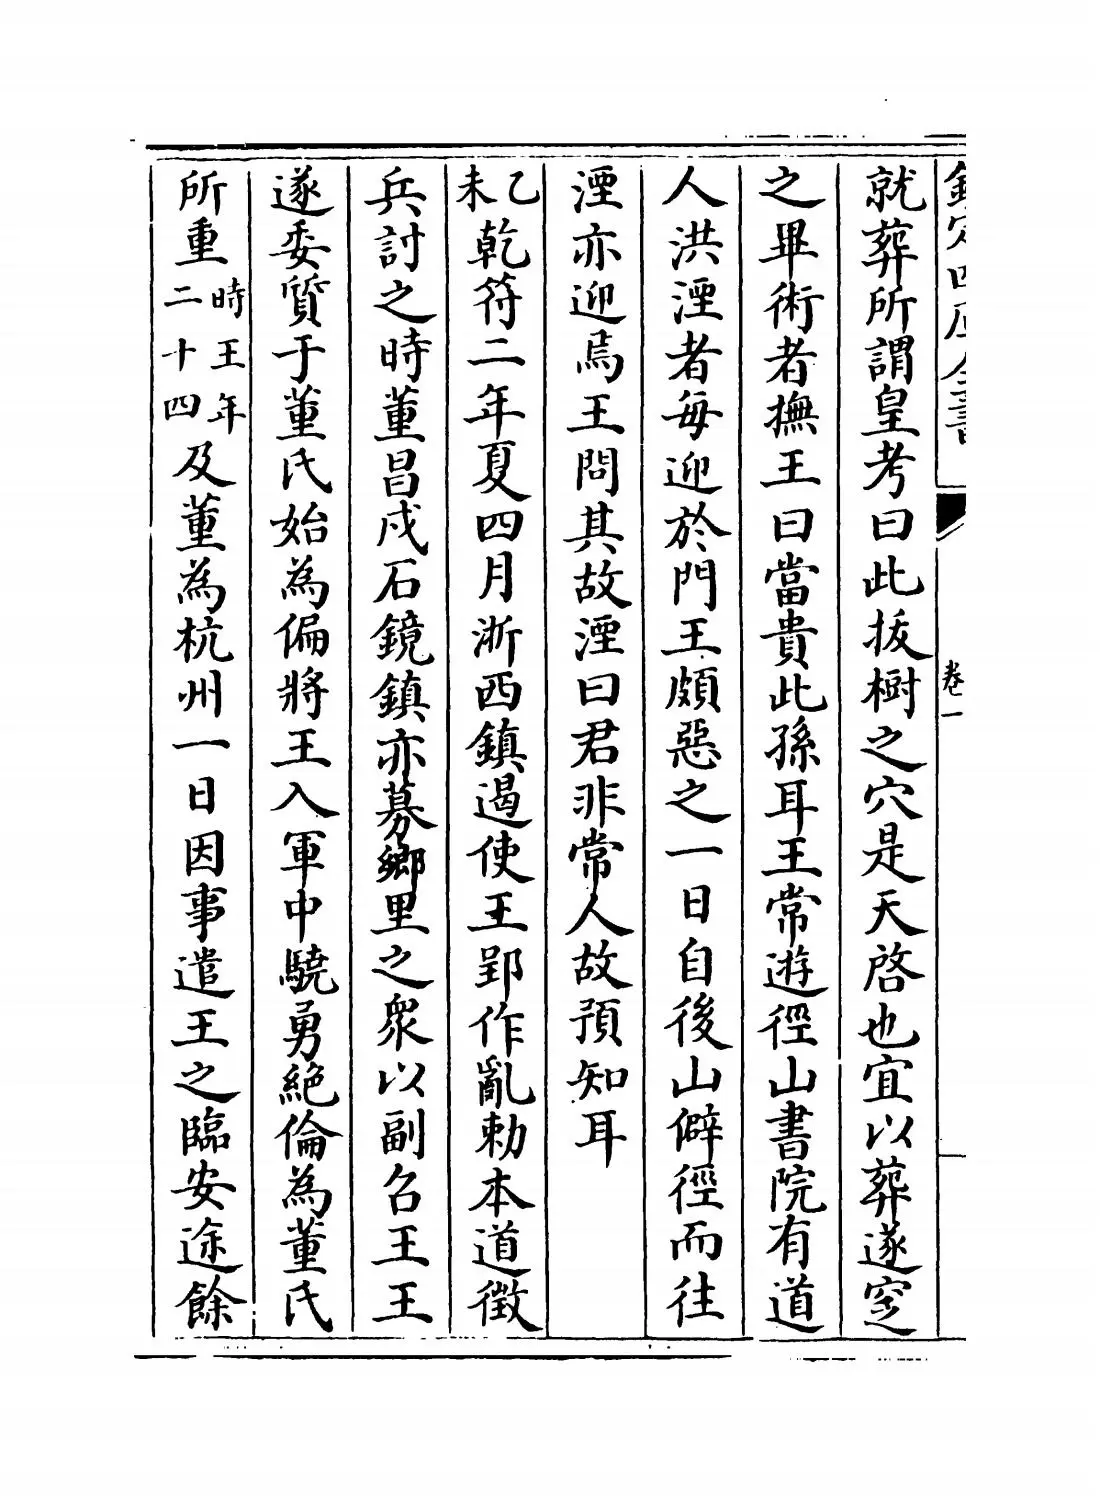 欽定四庫全書
卷一
就葬所謂皇考曰此拔樹之穴是天啓也宜以葬遂窆
之畢術者撫王曰當貴此孫耳王常遊徑山書院有道
人洪湮者每迎於門王頗惡之一日自後山僻徑而往
湮亦迎焉王問其故湮曰君非常人故預知耳
乙未乾符二年夏四月浙西鎮遏使王郢作亂勅本道徵
兵討之時董昌戍石鏡鎮亦募鄉里之衆以副召王王
遂委質于董氏始為偏將王入軍中驍勇絕倫為董氏
所重時王年二十四及董為杭州一日因事遣王之臨安途餘